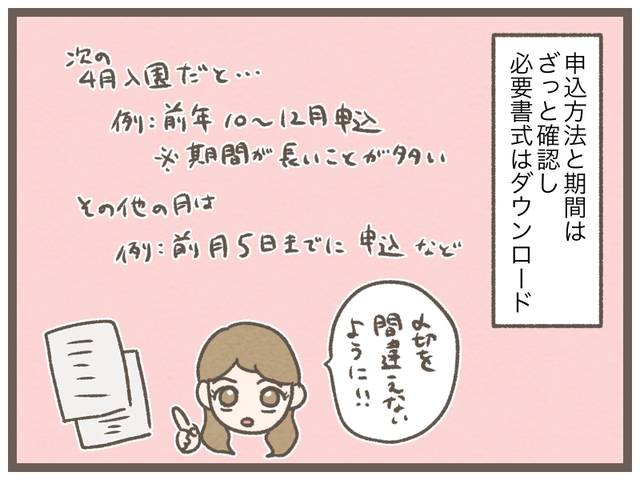 申込方法と期間は
ざっと確認し
必要書式はダウンロード
次の
4月入園だと…
例:前年10〜12月申込
※期間が長いことが多い
その他の月は
例:前月5日までに申込など
〆切を
間違えない
ように!!